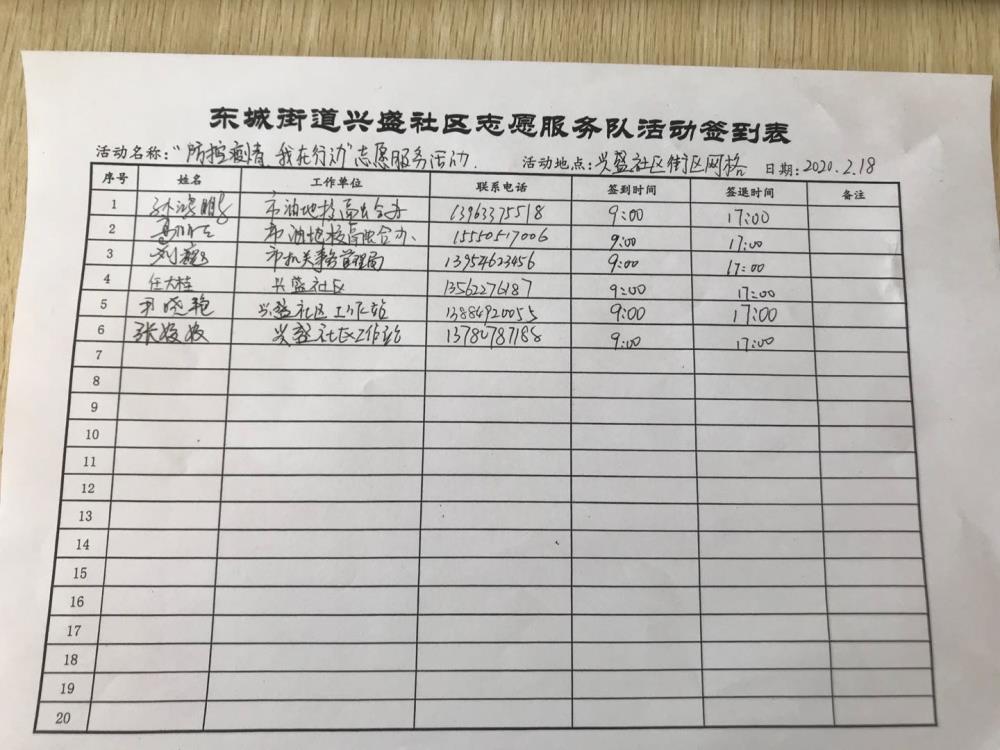 东城街道兴盛社区志愿服务队活动签到表
活动名称:"防控疫情 我在行动"志愿服务活动. 活动地点:兴盛社区街区网格 日期:2020.2.18
序号 姓名 工作单位 联系电话 签到时间 签退时间 备注
1 孙鸿鹏 市油地校高融合办 13963375518 9:00 17:00
2 市油地校高融合办、 15550517006 9:00 17:00
3 刘 市机关事务管理局 13954623456 9:00 17:00
4 任大桂 兴盛社区 13562276187 9:00 17:00
5 尹晓艳 兴盛社区工作站 13884920055 9:00 17:00
6 张姣姣 兴盛社区工作站 13780787188 9:00 17:00
7
8
9
10
11
12
13
14
15
16
17
18
19
20